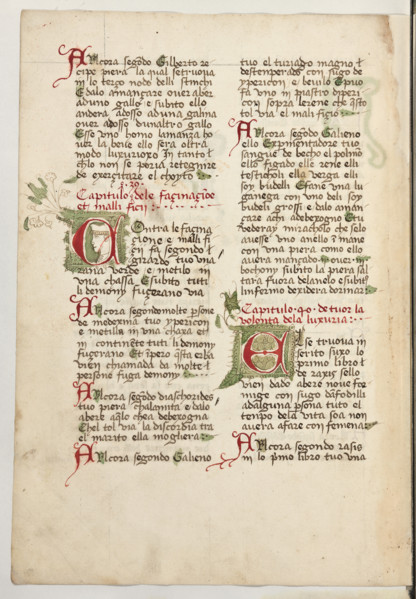 Ancora segondo Gilberto re
cipe piera la qual se truova
in lo terço nodo deli stinchi
E dalo a mançare over aber
aduno gallo e subito ello
andera adosso aduna galina
over adosso dunaltro gallo
E se uno homo la manza ho
uer la beve ello sera oltra
modo luxurioxo In tanto
chelo non se porra retegnire
de exercitare el choyto
c. 39.
Capitulo dele facinacione
et malli ficii
Contra le facina
cione e malli fi
cii fa segondo
girardo tuo una
rana verde e metilo in
una chassa E subito tuti
li demony fugerano via
Ancora segondo molte psone
de medexina tuo ypericon
e metilla in una chaxa et
in continēte tuti li demony
fugerano Et ipero q̄sta erba
vien chamada da molte
persone fuga demony
Ancora segōdo diaschorides
tuo piera chalamita e dalaj
abere aq̄llo chea debexogna
Chel tol via la discordia tra
el marito ella mogliera
Ancora segondo Galieno
tuo el turiago magno
destenperado con sugo de
ypericon e bevilo E puo
fa uno in piastro diperi
con sopra le rene che q̄sto
tol via el malificio
Ancora segōdo Galieno
ello Expimentadore tuo
sangue de becho el polmō
ello figado elle rene elli
testicholi ella verga elli
soy budelli E fane una lu
ganega con uno deli soy
budelli grossi e dalo aman
çare achi adebexogno E tu
vederay mirachollo che selo
avesse uno anello ī mane
con una piera come ello
avera mançado over in
bochony subito la piera sal
tara fuora delanelo e subito
linfermo dexidera dormir
Capitulo .40. de tuor la
volonta dela luxuria
El se truova in
scrito suxo lo
primo libro
de raxis sello
vien dado abere nove for
mige con sugo dasfodilli
ad alguna psona tuto el
tenpo dela vita soa non
avera afare con femena
Ancora segondo rasis
in lo pmo libro tuo una